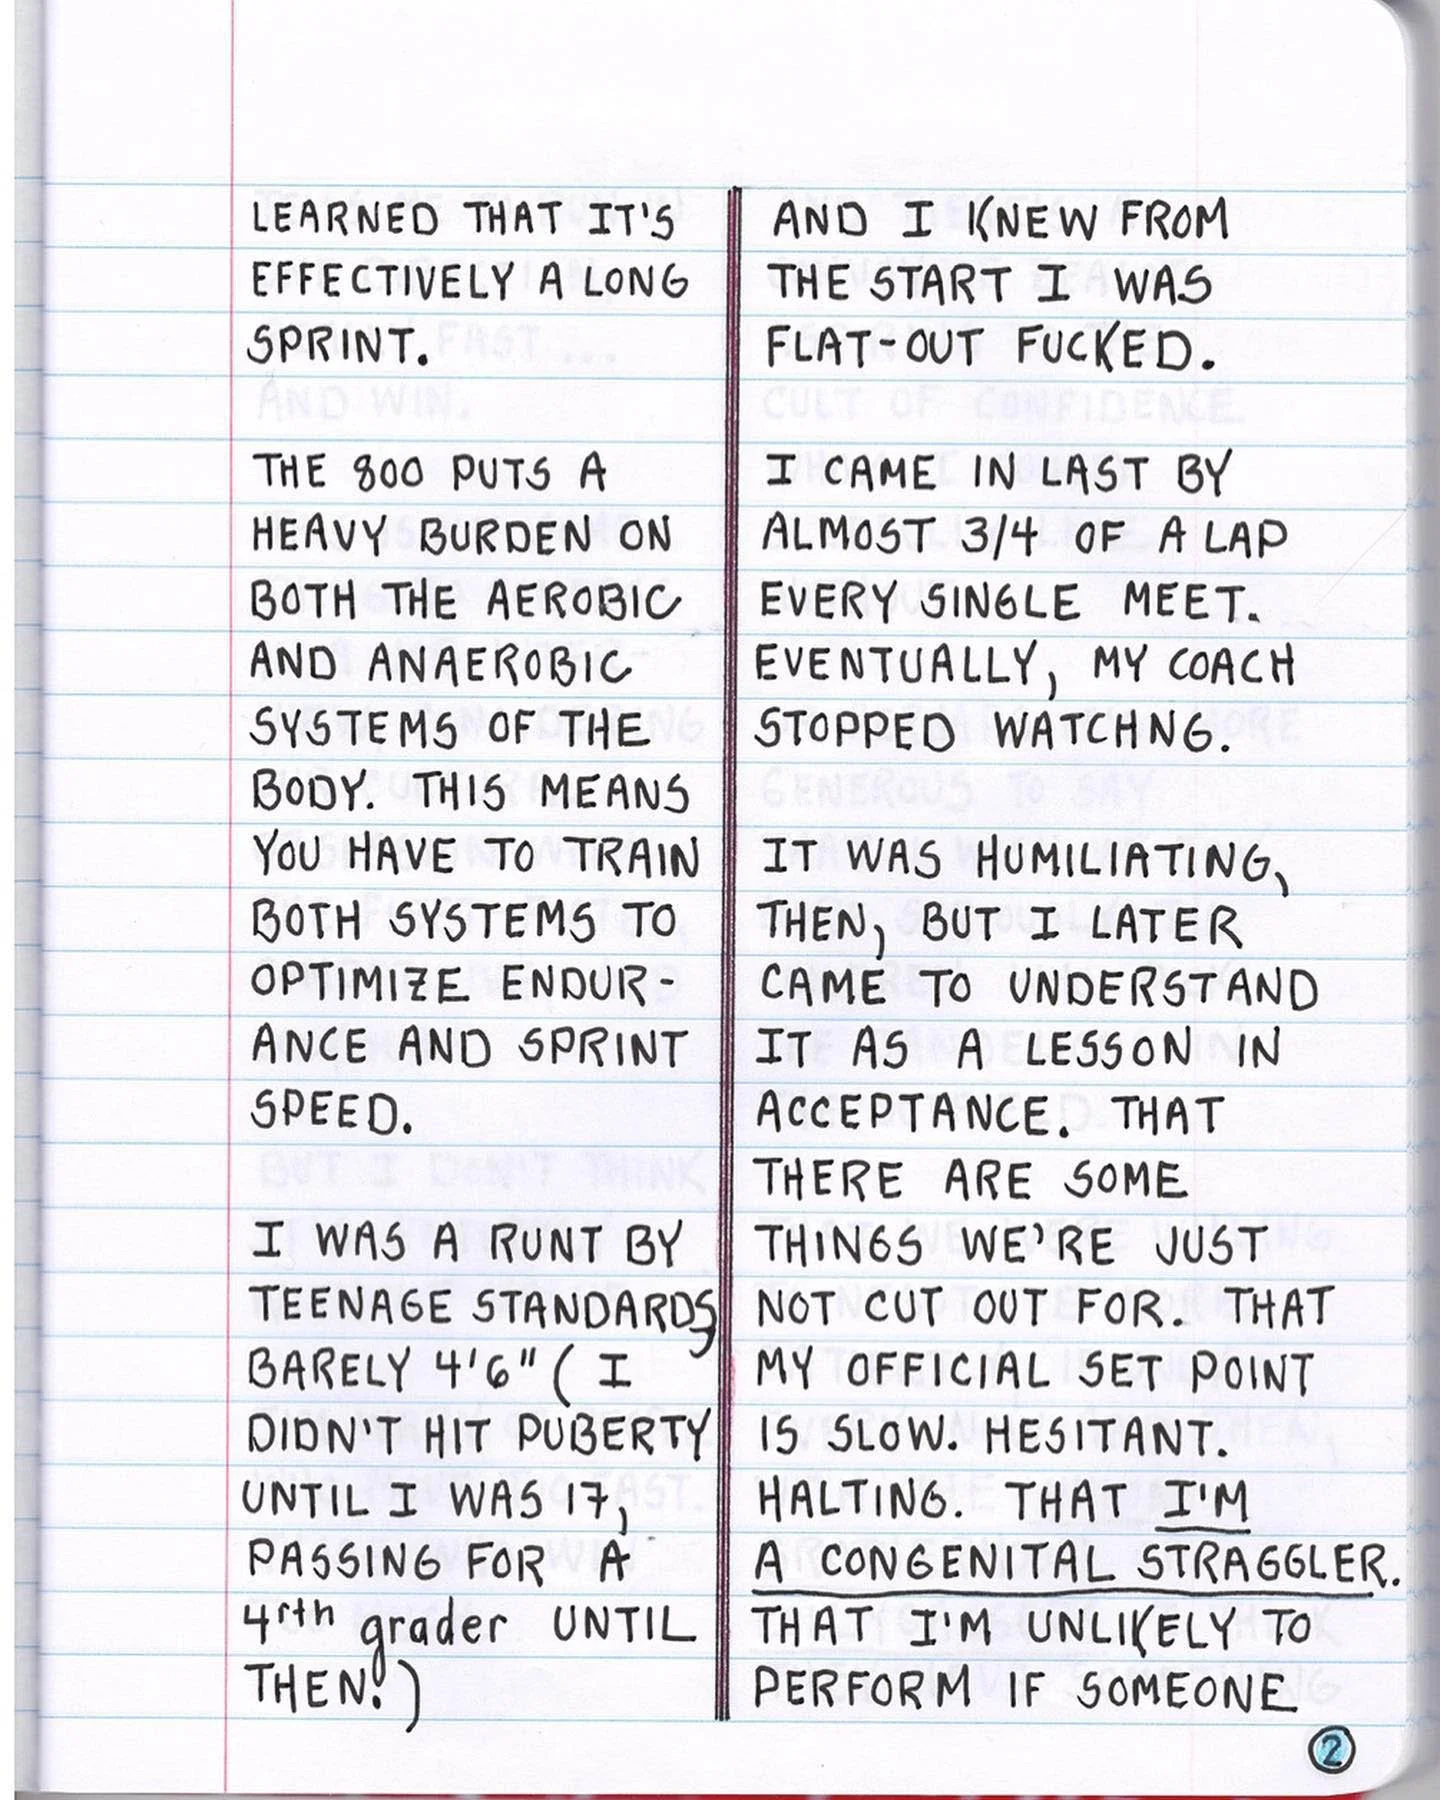 LEARNED THAT IT'S
EFFECTIVELY A LONG
SPRINT.
THE 800 PUTS A
HEAVY BURDEN ON
BOTH THE AEROBIC
AND ANAEROBIC
SYSTEMS OF THE
BODY. THIS MEANS
YOU HAVE TO TRAIN
BOTH SYSTEMS TO
OPTIMIZE ENDUR-
ANCE AND SPRINT
SPEED.
I WAS A RUNT BY
TEENAGE STANDARDS,
BARELY 4'6" (I
DIDN'T HIT PUBERTY
UNTIL I WAS 17,
PASSING FOR A
4rth grader UNTIL
THEN!)
AND I KNEW FROM
THE START I WAS
FLAT-OUT FUCKED.
I CAME IN LAST BY
ALMOST 3/4 OF A LAP
EVERY SINGLE MEET.
EVENTUALLY, MY COACH
STOPPED WATCHNG.
IT WAS HUMILIATING,
THEN, BUT I LATER
CAME TO UNDERSTAND
IT AS A LESSON IN
ACCEPTANCE. THAT
THERE ARE SOME
THINGS WE'RE JUST
NOT CUT OUT FOR. THAT
MY OFFICIAL SET POINT
IS SLOW. HESITANT.
HALTING. THAT I'M
A CONGENITAL STRAGGLER.
THAT I'M UNLIKELY TO
PERFORM IF SOMEONE
2